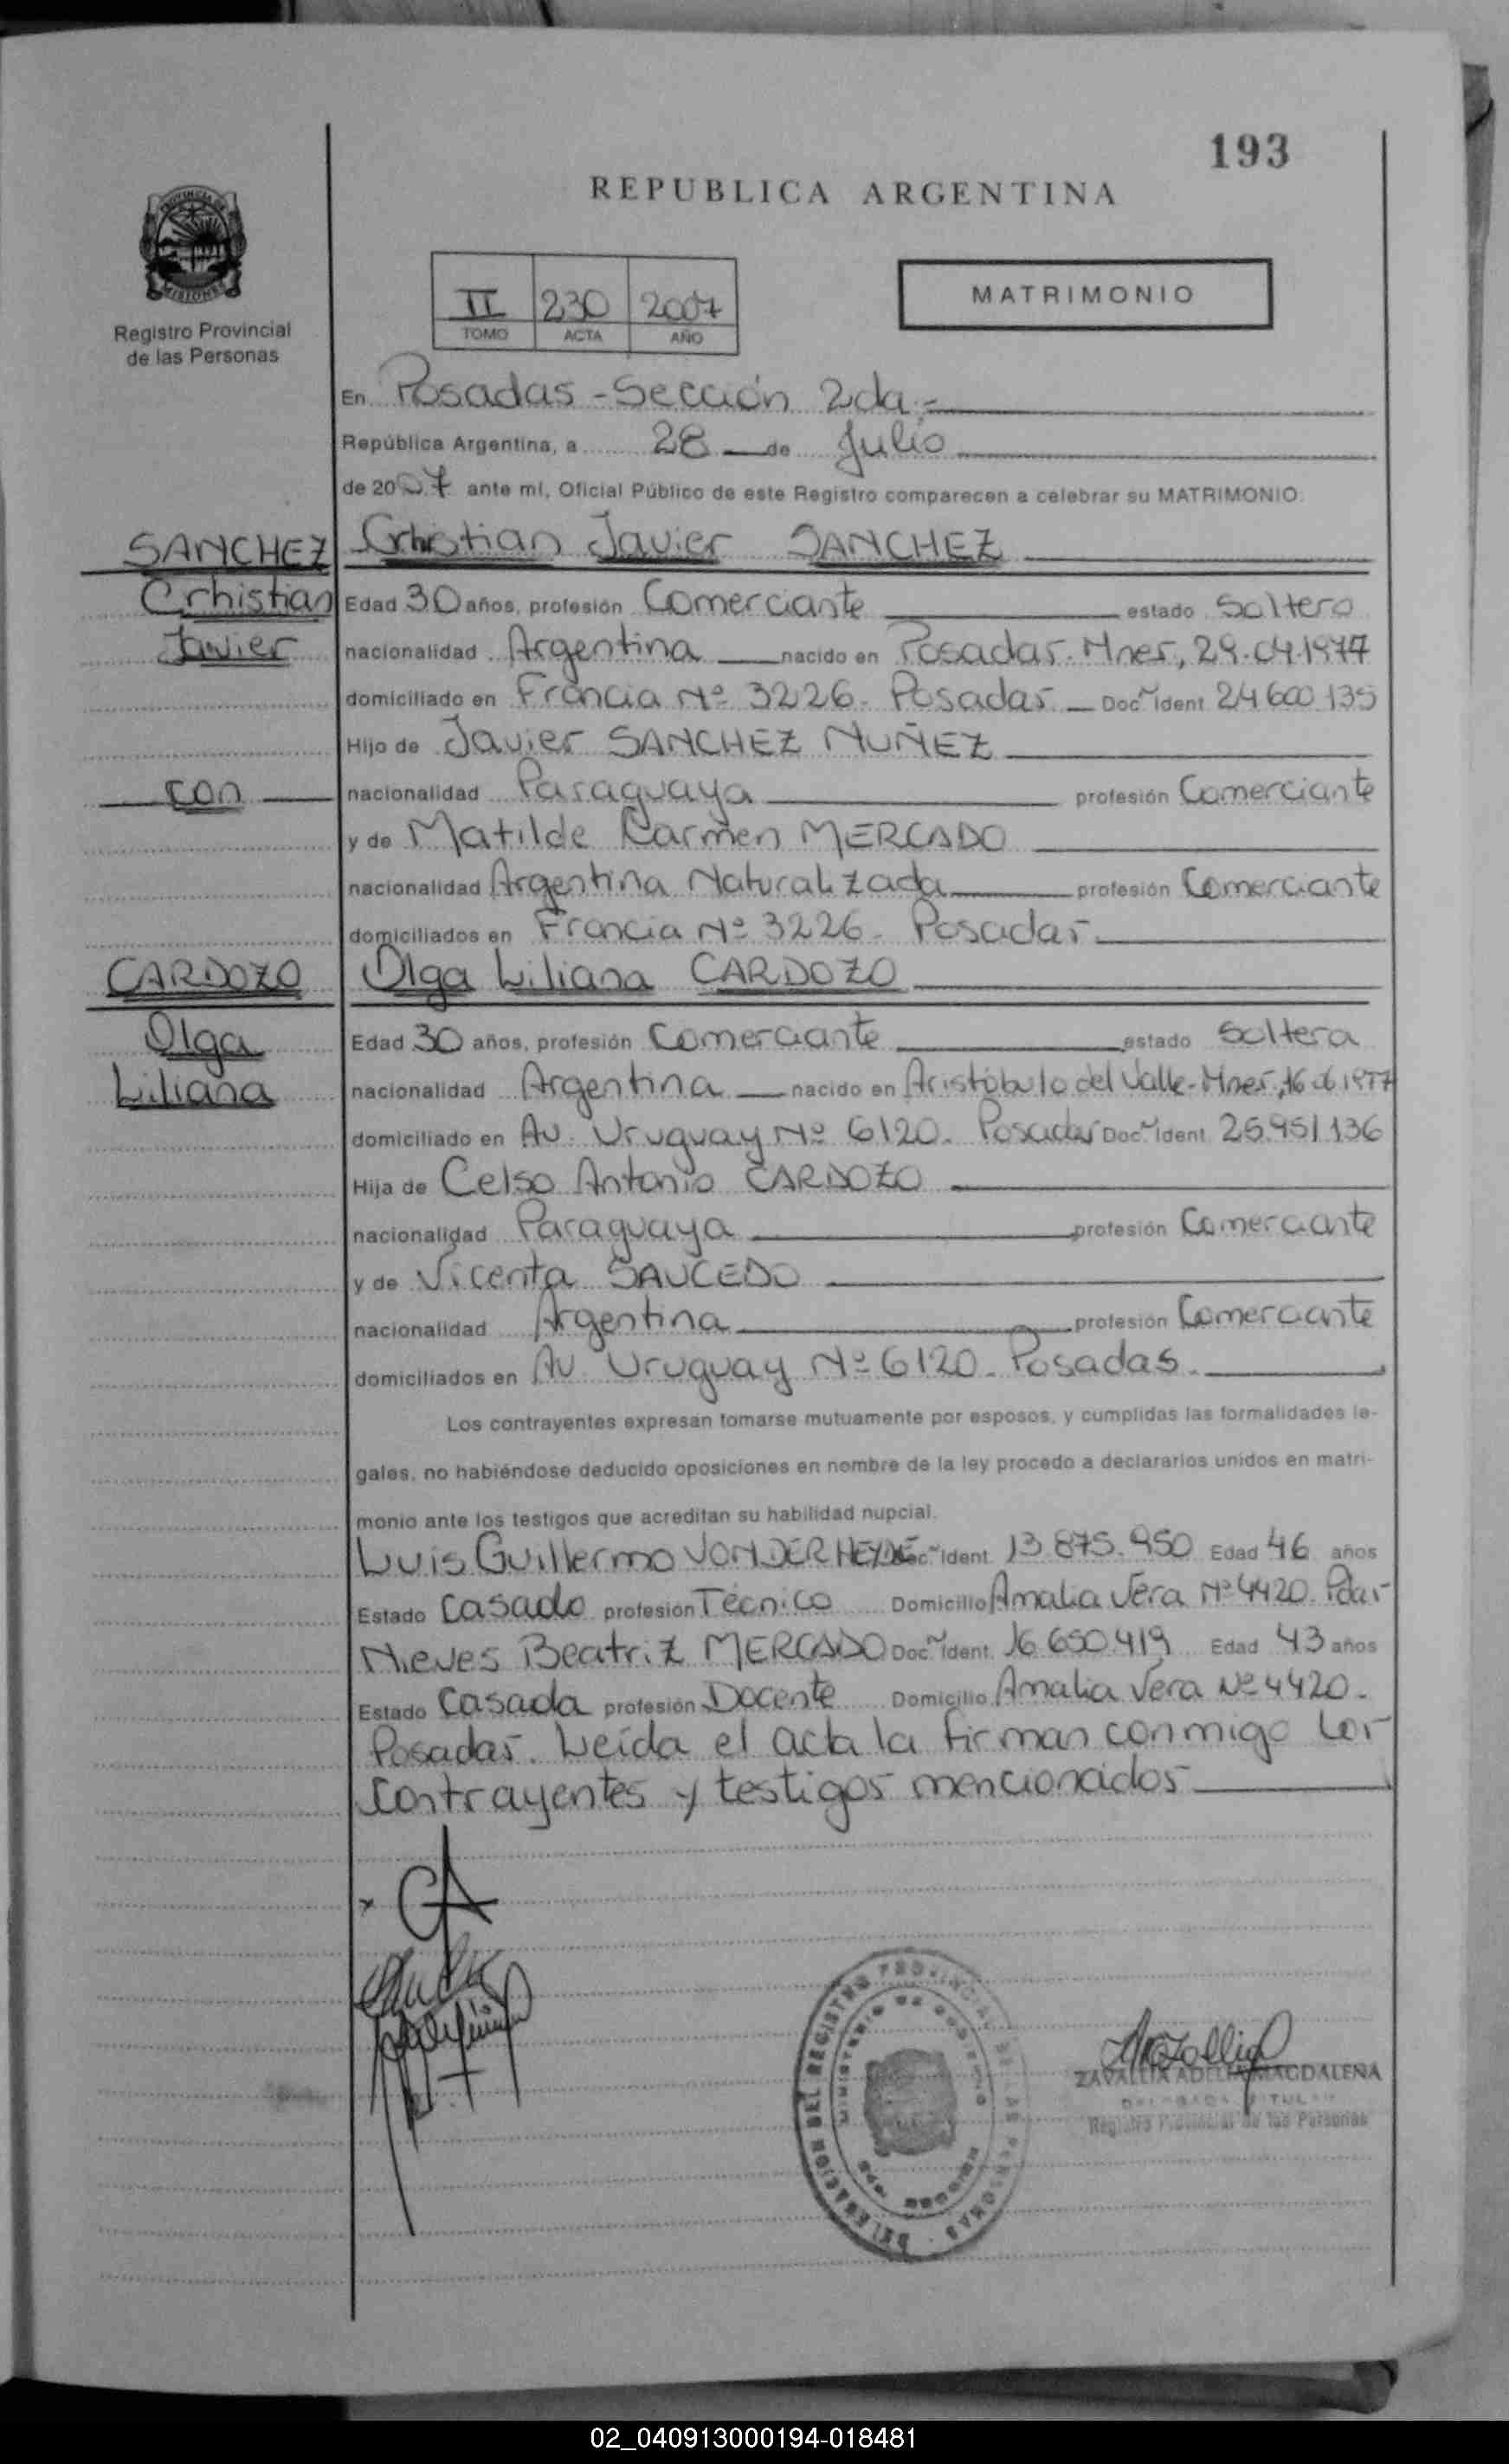 193
REPUBLICA ARGENTINA
PROVINCIA DE
MISIONES
Registro Provincial
de las Personas
II 230 2007
TOMO ACTA AÑO
MATRIMONIO
En Posadas - Sección 2da.-
República Argentina, a 28 de Julio
de 2007 ante mí, Oficial Público de este Registro comparecen a celebrar su MATRIMONIO:
SANCHEZ Crhistian Javier SANCHEZ
Crhistian Edad 30 años, profesión Comerciante estado Soltero
Javier nacionalidad Argentina nacido en Posadas-Mnes, 29.04.1977
domiciliado en Francia Nº 3226. Posadas Doc. Ident. 24.600.135
Hijo de Javier SANCHEZ NUÑEZ
con nacionalidad Paraguaya profesión Comerciante
y de Matilde Carmen MERCADO
nacionalidad Argentina Naturalizada profesión Comerciante
domiciliados en Francia Nº 3226. Posadas
CARDOZO Olga Liliana CARDOZO
Olga Edad 30 años, profesión Comerciante estado Soltera
Liliana nacionalidad Argentina nacido en Aristóbulo del Valle-Mnes, 16.06.1977
domiciliado en Av. Uruguay Nº 6120. Posadas Doc. Ident. 25.951.136
Hija de Celso Antonio CARDOZO
nacionalidad Paraguaya profesión Comerciante
y de Vicenta SAUCEDO
nacionalidad Argentina profesión Comerciante
domiciliados en Av. Uruguay Nº 6120. Posadas.
Los contrayentes expresan tomarse mutuamente por esposos, y cumplidas las formalidades le-
gales, no habiéndose deducido oposiciones en nombre de la ley procedo a declararlos unidos en matri-
monio ante los testigos que acreditan su habilidad nupcial.
Luis Guillermo VONDERHEYDE Doc. Ident. 13.875.950 Edad 46 años
Estado Casado profesión Técnico Domicilio Amalia Vera Nº 4420. Pdas-
Nieves Beatriz MERCADO Doc. Ident. 16.650.419 Edad 43 años
Estado Casada profesión Docente Domicilio Amalia Vera Nº 4420.
Posadas. Leída el acta la firman conmigo los
contrayentes y testigos mencionados
DELEGACION DEL REGISTRO PROVINCIAL DE LAS PERSONAS
MINISTERIO DE GOBIERNO
ZAVALLIA ADELIA MAGDALENA
DELEGADA TITULAR
Registro Provincial de las Personas
02_040913000194-018481